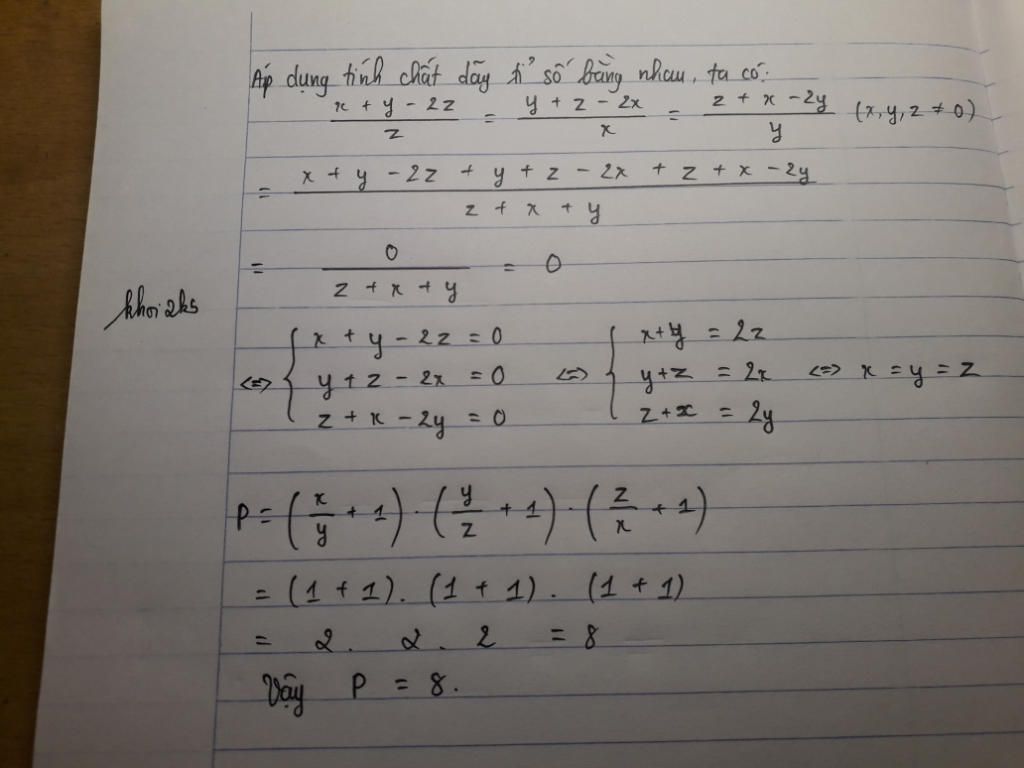 Áp dụng tính chất dãy tỉ số bằng nhau, ta có:
(x + y - 2z)/z = (y + z - 2x)/x = (z + x - 2y)/y (x, y, z ≠ 0)
= (x + y - 2z + y + z - 2x + z + x - 2y)/(z + x + y)
= 0/(z + x + y) = 0
khoi2k5
<=> { x + y - 2z = 0 <=> { x+y = 2z
y + z - 2x = 0 y+z = 2x <=> x = y = z
z + x - 2y = 0 z+x = 2y
P = (x/y + 1) . (y/z + 1) . (z/x + 1)
= (1 + 1). (1 + 1). (1 + 1)
= 2. 2. 2 = 8
Vậy P = 8.